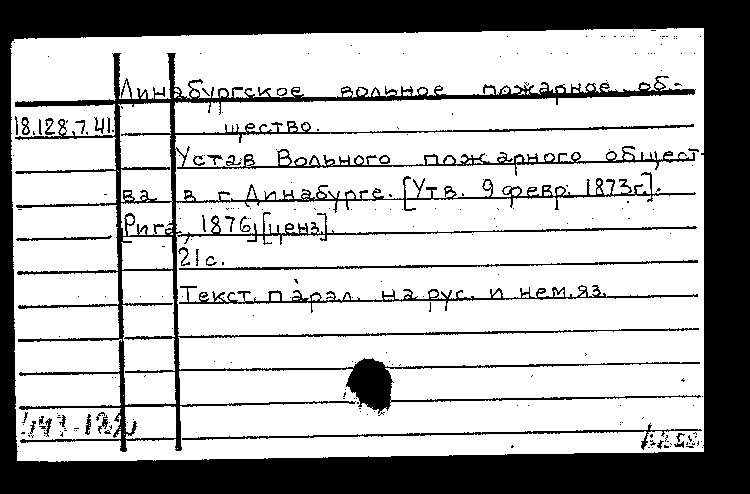 Динабургское вольное пожарное об-
18.128.7.41. щество.
Устав Вольного пожарного общест-
ва в г. Динабурге. [Утв. 9 февр. 1873г.].
[Рига, 1876] [ценз].
21 с.
Текст. парал. на рус. и нем. яз.